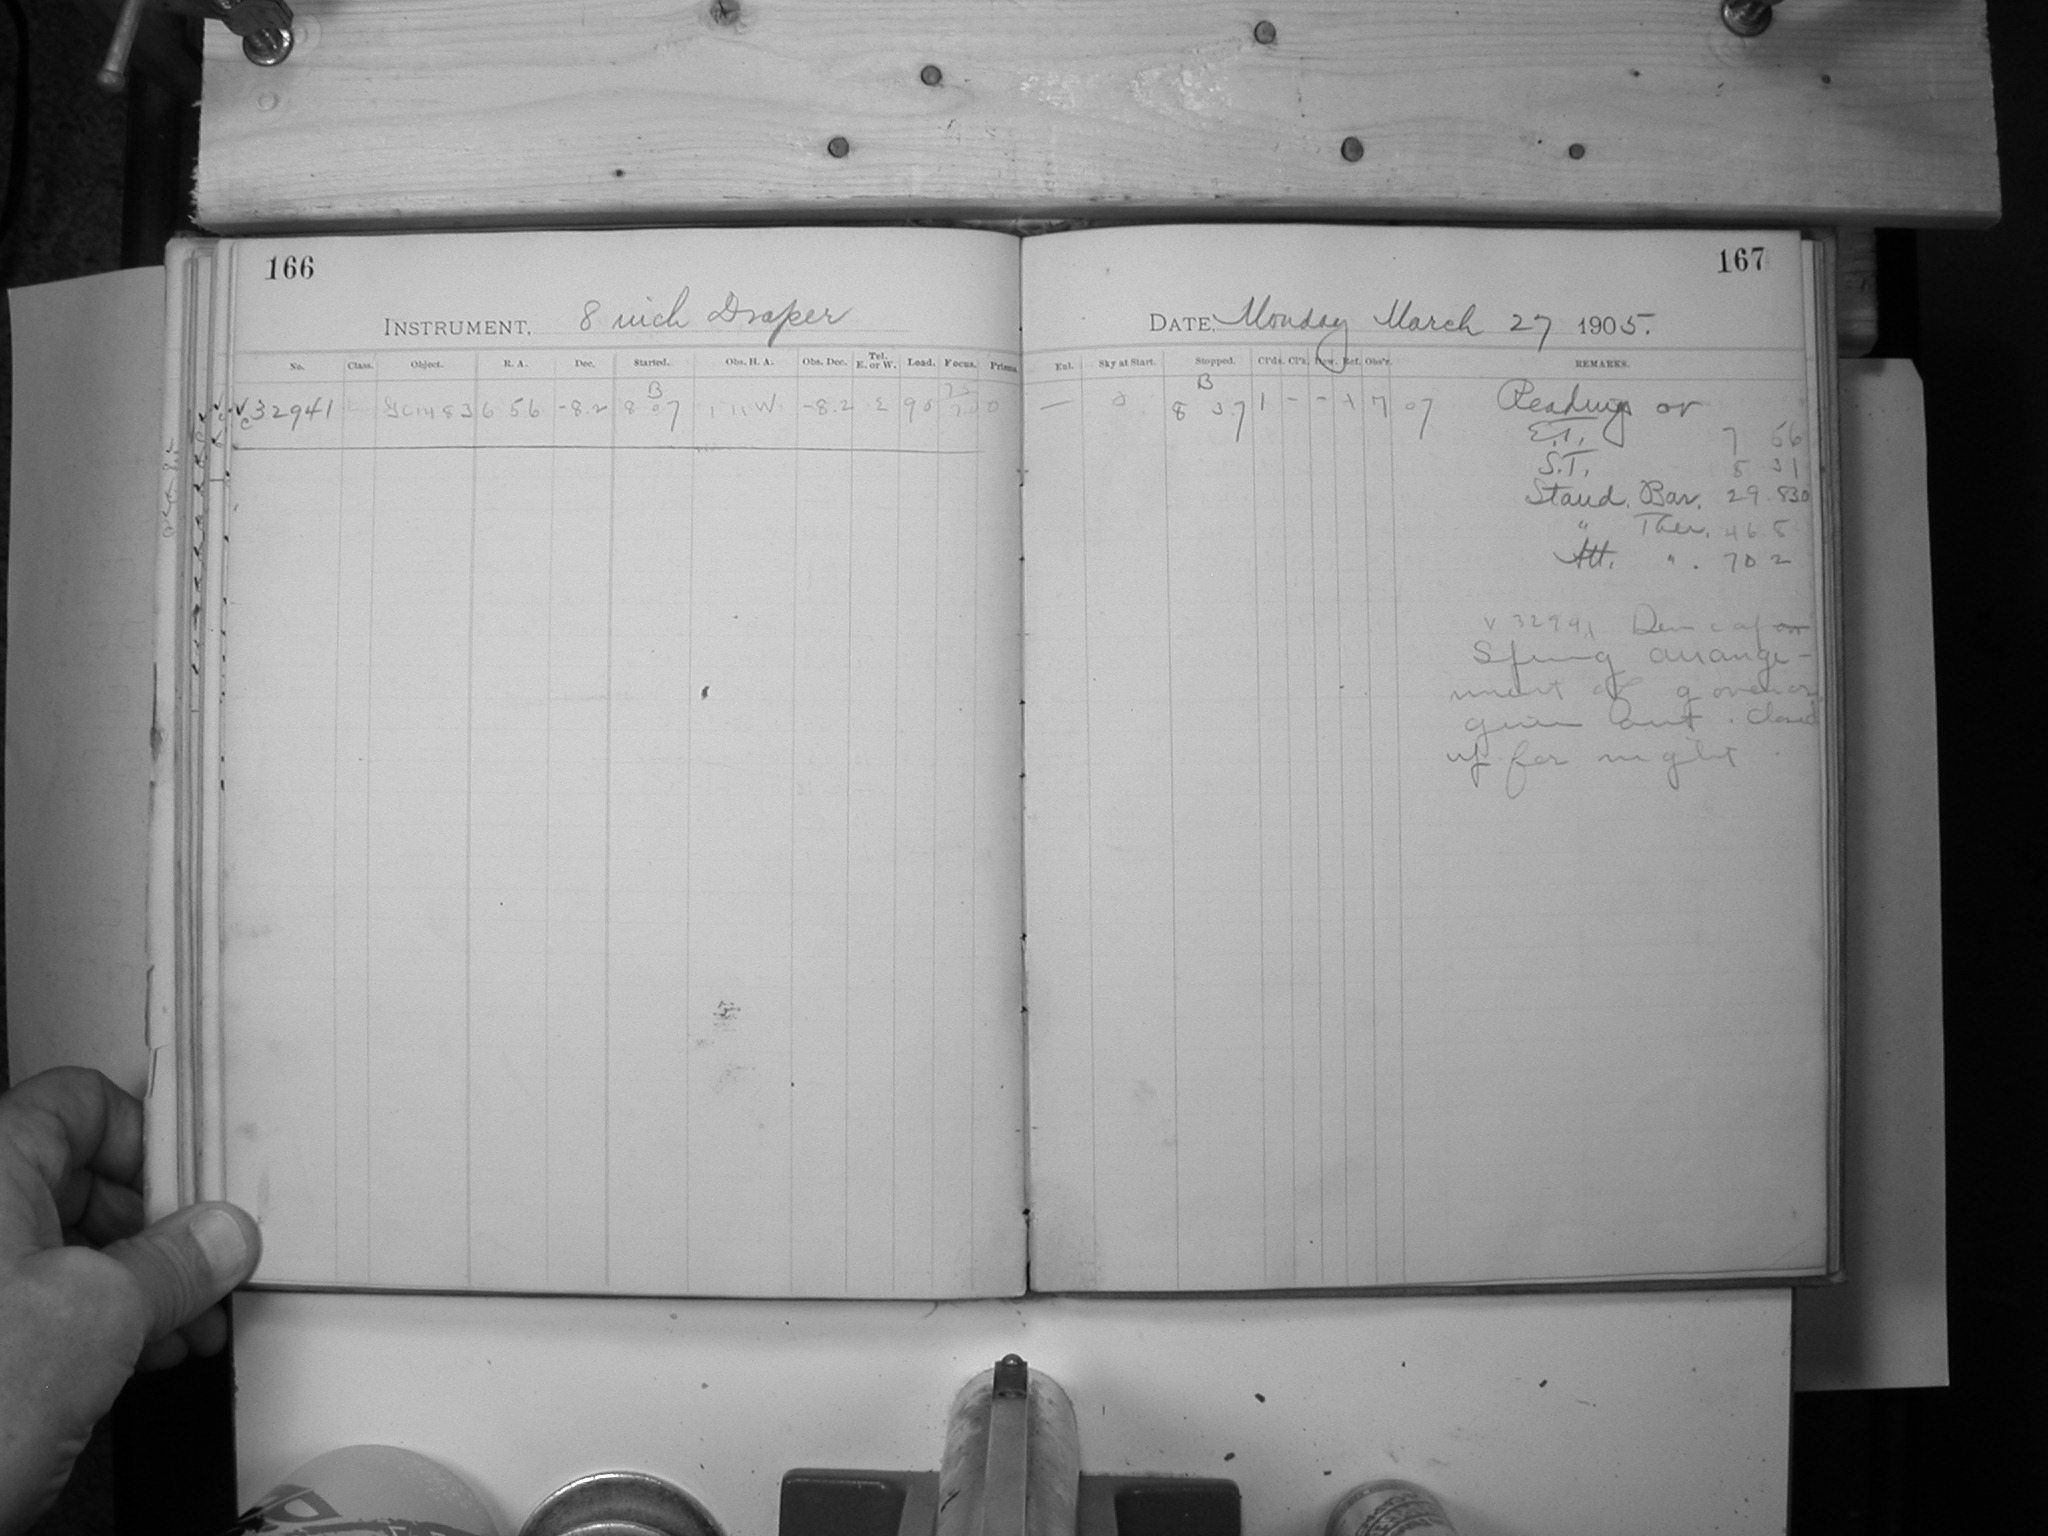 166
INSTRUMENT, 8 inch Draper
No. Class. Object. R. A. Dec. Started. Obs. H. A. Obs. Dec. Tel. E. or W. Load. Focus. Prisms.
B
32941 6 56 -8.2 8 07 1 11 W -8.2 E 90 0
167
DATE, Monday March 27 1905.
Eul. Sky at Start. Stopped. Cl'ds. Cl'r. Dew. Ref. Obs'r. REMARKS.
B
8 37 1 - - 7 07
Readings or
E.T. 7 56
S.T. 8 31
Stand. Bar. 29.830
" Ther. 46.5
Att. " . 70 2
32941 Dew cap on
Spring arrange-
ment of governor
given out. Closed
up for night.